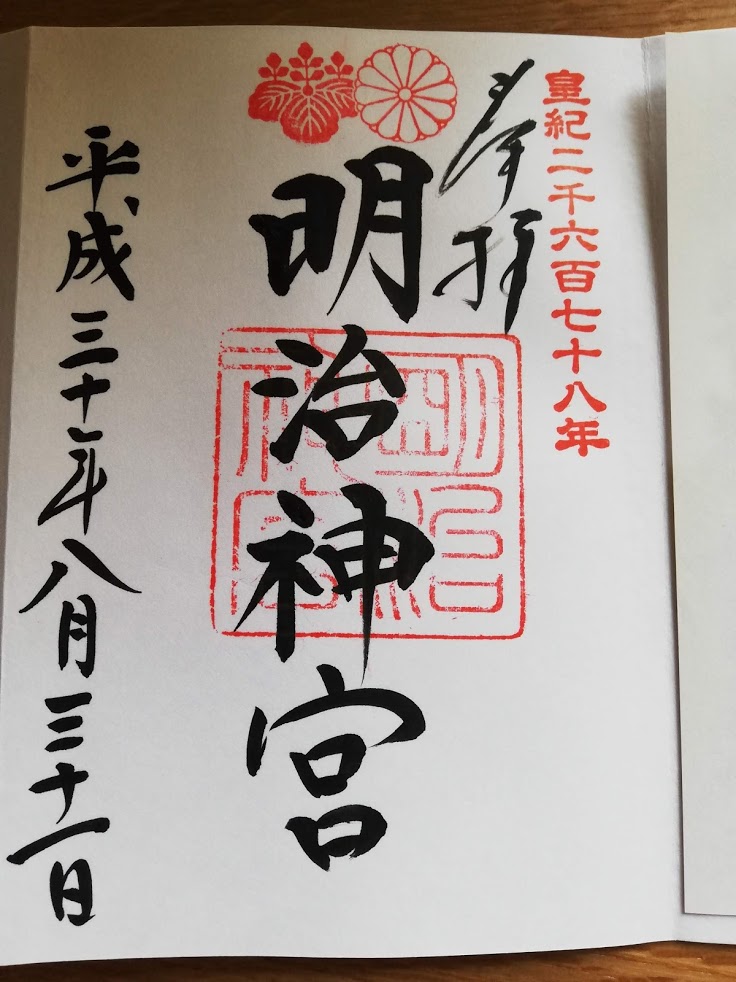 皇紀二千六百七十八年
奉拝
明治神宮
明治神宮
平成三十年八月三十一日